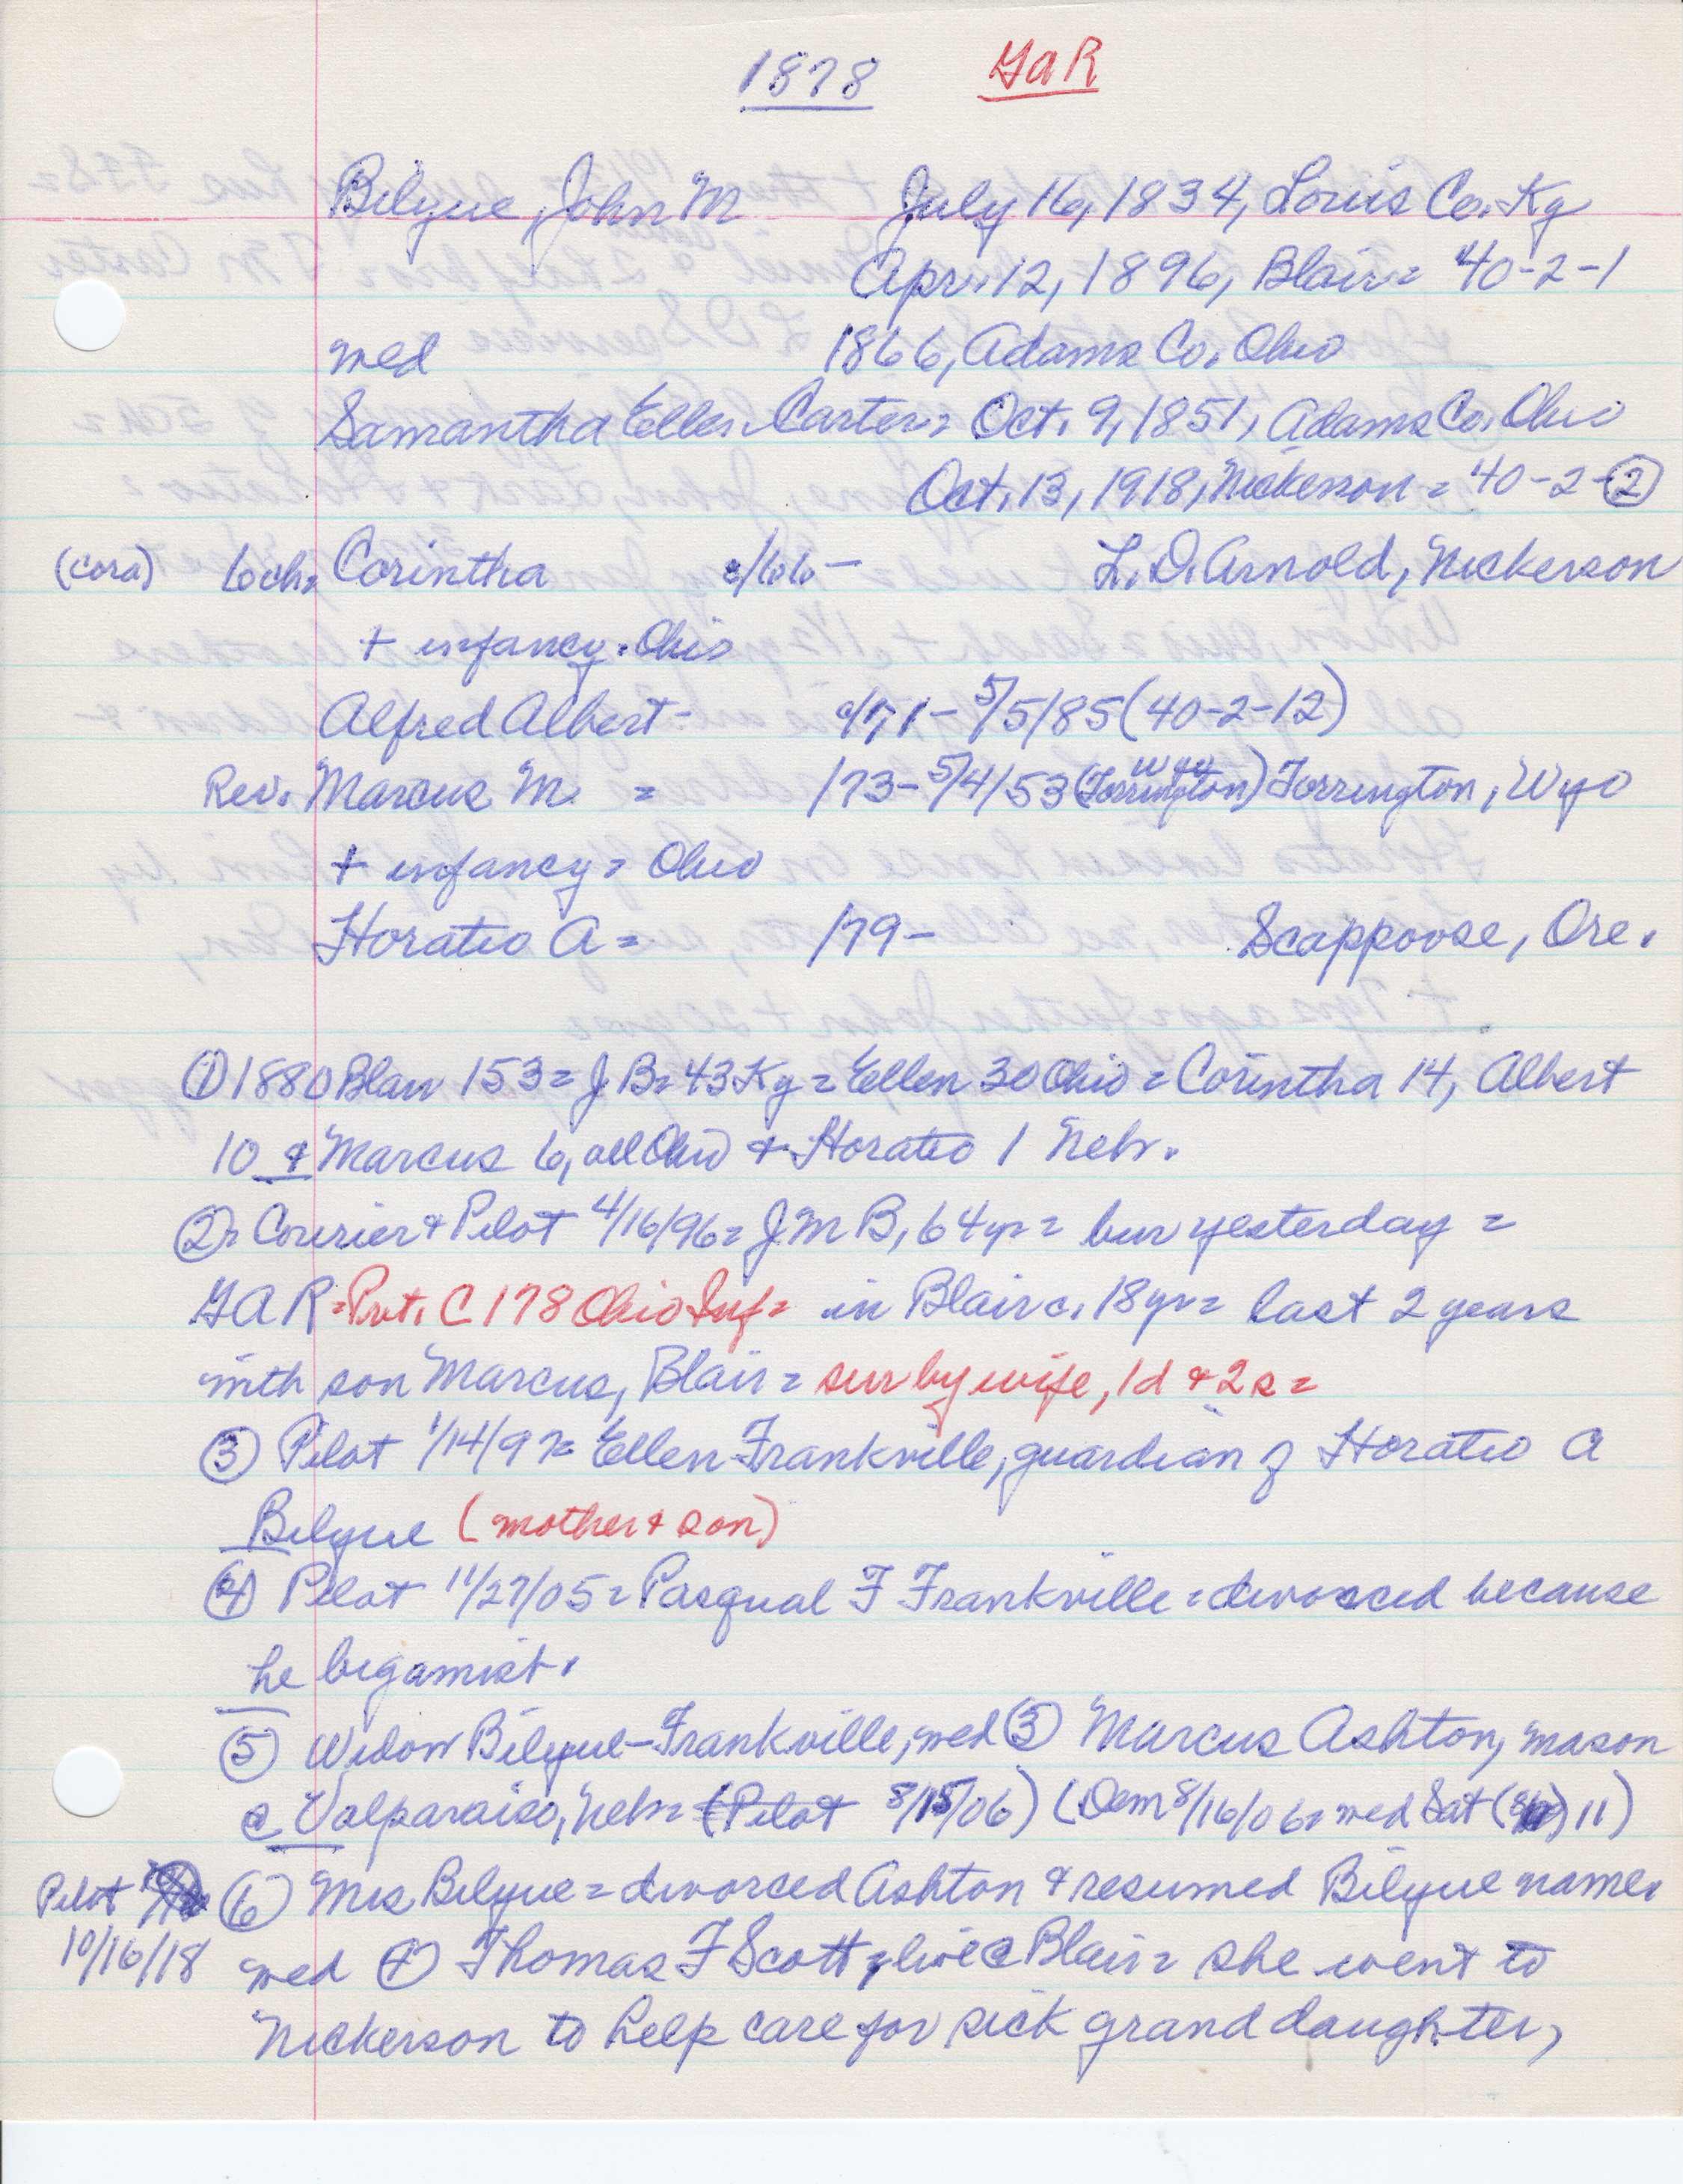 1878 GaR
Bilyue, John M July 16, 1834, Louis Co. Ky
Apr. 12, 1896, Blair = 40-2-1
med 1866, Adams Co. Ohio
Samantha Ellen Carter = Oct. 9, 1851, Adams Co. Ohio
Oct. 13, 1918, Nickerson = 40-2-②
(Cora) 6 ch = Corintha c/66- L. D. Arnold, Nickerson
+ infancy. Ohio
Alfred Albert - c/71 - 5/5/85 (40-2-12)
Rev. Marcus M. = /73 - 5/4/53 (Torrington) Torrington, Wyo
+ infancy = Ohio
Horatio A = /79 - Scappoose, Ore.
① 1880 Blair 153 = J B = 43 Ky = Ellen 30 Ohio = Corintha 14, Albert
10 & Marcus 6, all Ohio + Horatio 1 Nebr.
② Courier & Pilot 4/16/96 = J M B, 64 yr = bur yesterday =
GAR = Pvt. C 178 Ohio Inf = in Blair c. 18 yr = last 2 years
with son Marcus, Blair = sur by wife, 1d & 2s =
③ Pilot 1/14/97 = Ellen Frankville, guardian of Horatio A
Bilyue (mother & son)
④ Pilot 11/27/05 = Pasqual F Frankville = divorced because
he bigamist.
⑤ Widow Bilyue-Frankville, med ③ Marcus Ashton, mason
@ Valparaiso, Nebr = (Pilot 8/15/06) (Dem 8/16/06 = med Sat 11)
Pilot ⑥ Mrs Bilyue = divorced Ashton & resumed Bilyue name.
10/16/18 med ④ Thomas F Scott, live @ Blair = she went to
Nickerson to help care for sick grand daughter,